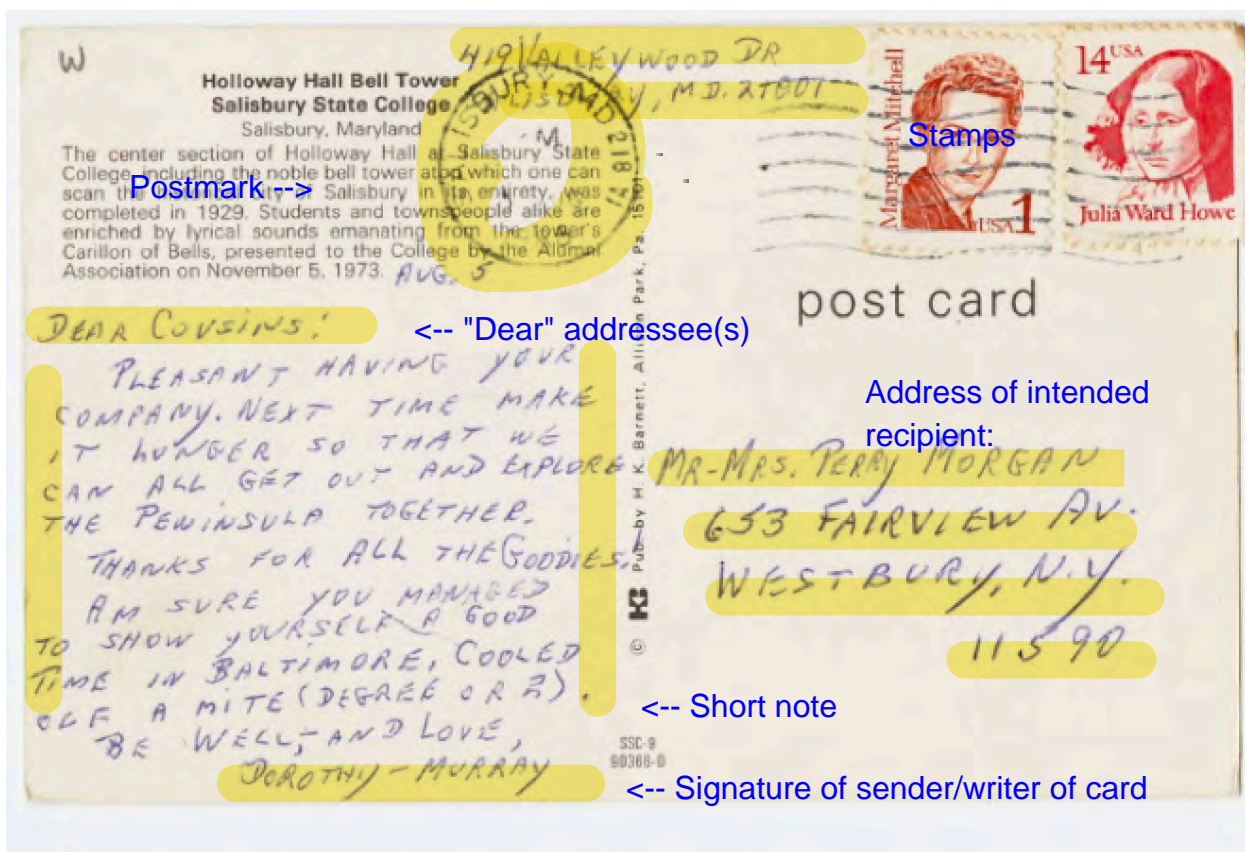 W
419 VALLEYWOOD DR
SALISBURY, M.D. 21801
Holloway Hall Bell Tower
Salisbury State College
Salisbury, Maryland
The center section of Holloway Hall at Salisbury State
College, including the noble bell tower atop which one can
scan the city of Salisbury in its entirety, was
completed in 1929. Students and townspeople alike are
enriched by lyrical sounds emanating from the tower's
Carillon of Bells, presented to the College by the Alumni
Association on November 5, 1973.
AUG. 5
SALISBURY MD 218
Postmark -->
Margaret Mitchell
USA 1
14 USA
Julia Ward Howe
Stamps
post card
DEAR COUSINS:
<-- "Dear" addressee(s)
PLEASANT HAVING YOUR
COMPANY. NEXT TIME MAKE
IT LONGER SO THAT WE
CAN ALL GET OUT AND EXPLORE
THE PENINSULA TOGETHER.
THANKS FOR ALL THE GOODIES.
AM SURE YOU MANAGED
TO SHOW YOURSELF A GOOD
TIME IN BALTIMORE, COOLED
OFF A MITE (DEGREE OR 2).
BE WELL, AND LOVE,
DOROTHY - MURRAY
<-- Short note
<-- Signature of sender/writer of card
© Pub. by H. K. Barnett, Allison Park, Pa. 15101
SSC-9
90366-D
Address of intended
recipient:
MR-MRS. PERRY MORGAN
653 FAIRVIEW AV.
WESTBURY, N.Y.
11590